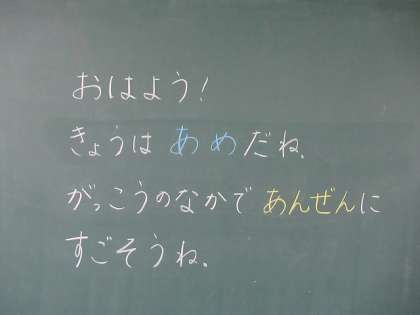 おはよう!
きょうは あめだね、
がっこうのなかで あんぜんに
すごそうね。